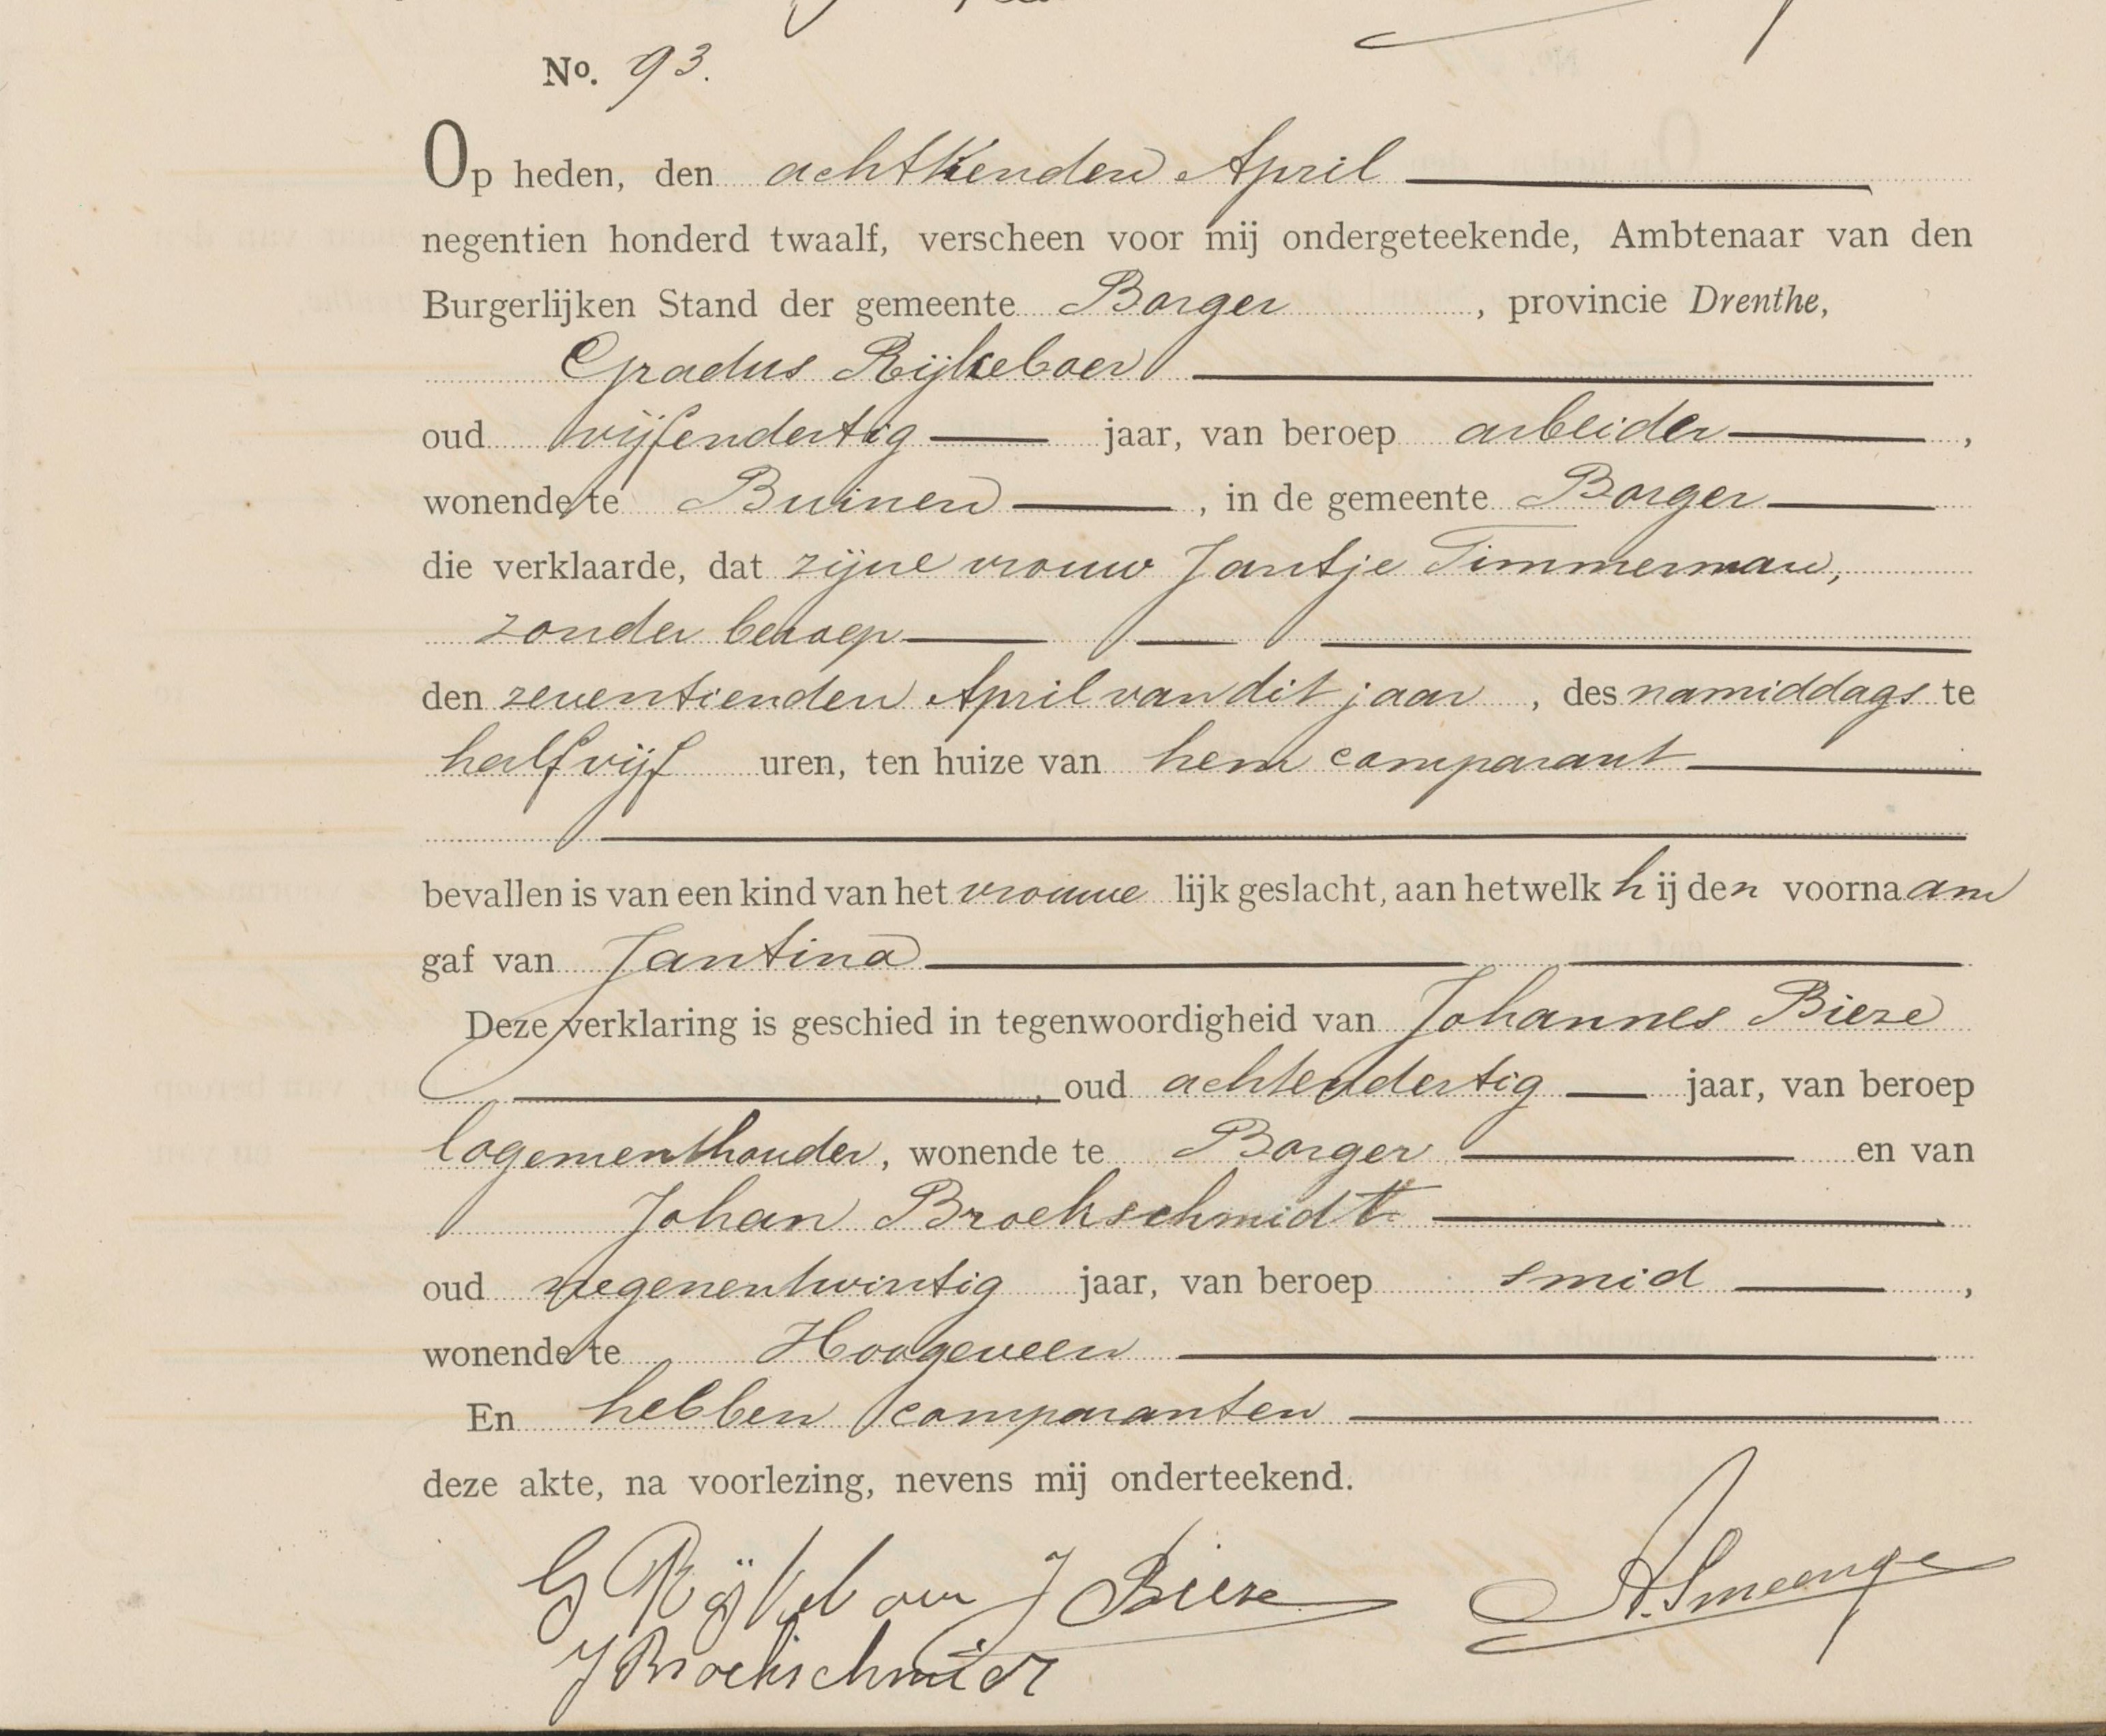 No. 93.
Op heden, den achttienden April
negentien honderd twaalf, verscheen voor mij ondergeteekende, Ambtenaar van den
Burgerlijken Stand der gemeente Borger, provincie Drenthe,
Gradus Rijkeboer
oud vijfendertig jaar, van beroep arbeider,
wonende te Buinen, in de gemeente Borger
die verklaarde, dat zijne vrouw Jantje Timmerman,
zonder beroep
den zeventienden April van dit jaar, des namiddags te
half vijf uren, ten huize van hem comparant
bevallen is van een kind van het vrouwelijk geslacht, aan hetwelk hij den voornaam
gaf van Jantina
Deze verklaring is geschied in tegenwoordigheid van Johannes Bieze
, oud achtendertig jaar, van beroep
logementhouder, wonende te Borger en van
Johan Broekschmidt
oud negenentwintig jaar, van beroep smid,
wonende te Hoogeveen
En hebben comparanten
deze akte, na voorlezing, nevens mij onderteekend.
G Rijkeboer J Bieze A. Smeenge
J Broekschmidt